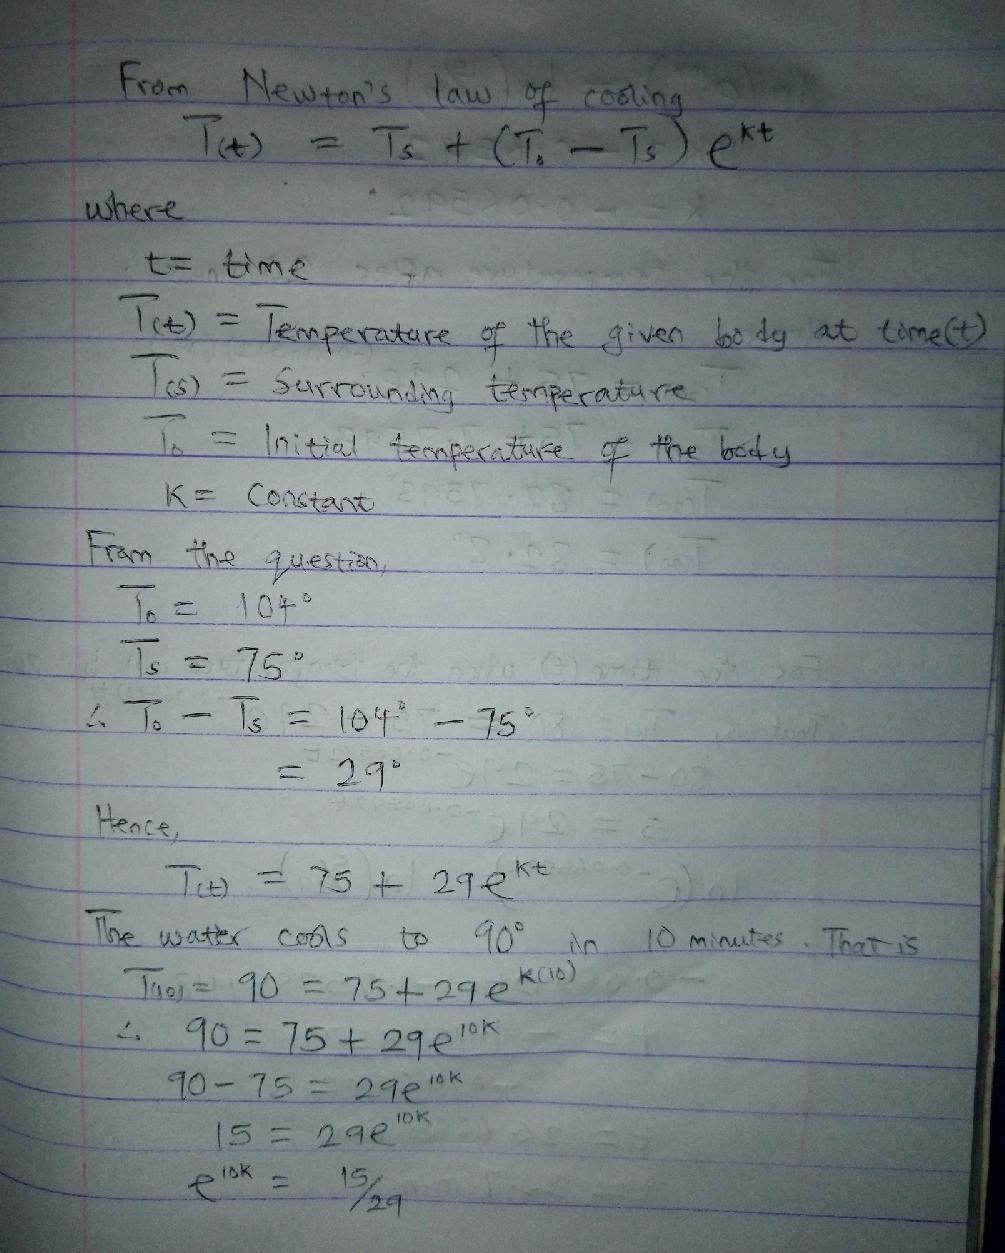 From Newton's law of cooling
T(t) = Ts + (T₀ - Ts) e^kt
where
t = time
T(t) = Temperature of the given body at time(t)
T(s) = Surrounding temperature
T₀ = Initial temperature of the body
K = Constant
From the question,
T₀ = 104°
Ts = 75°
∴ T₀ - Ts = 104° - 75°
= 29°
Hence,
T(t) = 75 + 29e^kt
The water cools to 90° in 10 minutes. That is
T(10) = 90 = 75 + 29e^K(10)
∴ 90 = 75 + 29e^10K
90 - 75 = 29e^10K
15 = 29e^10K
e^10K = 15/29